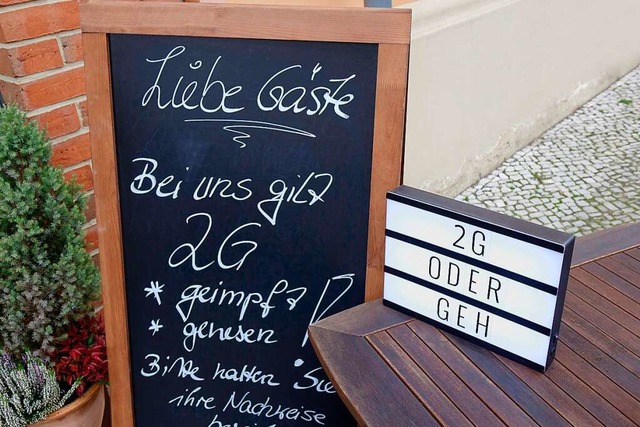 Liebe Gäste
Bei uns gilt
2G
* geimpft
* genesen !
Bitte halten Sie
ihre Nachweise
2G
ODER
GEH